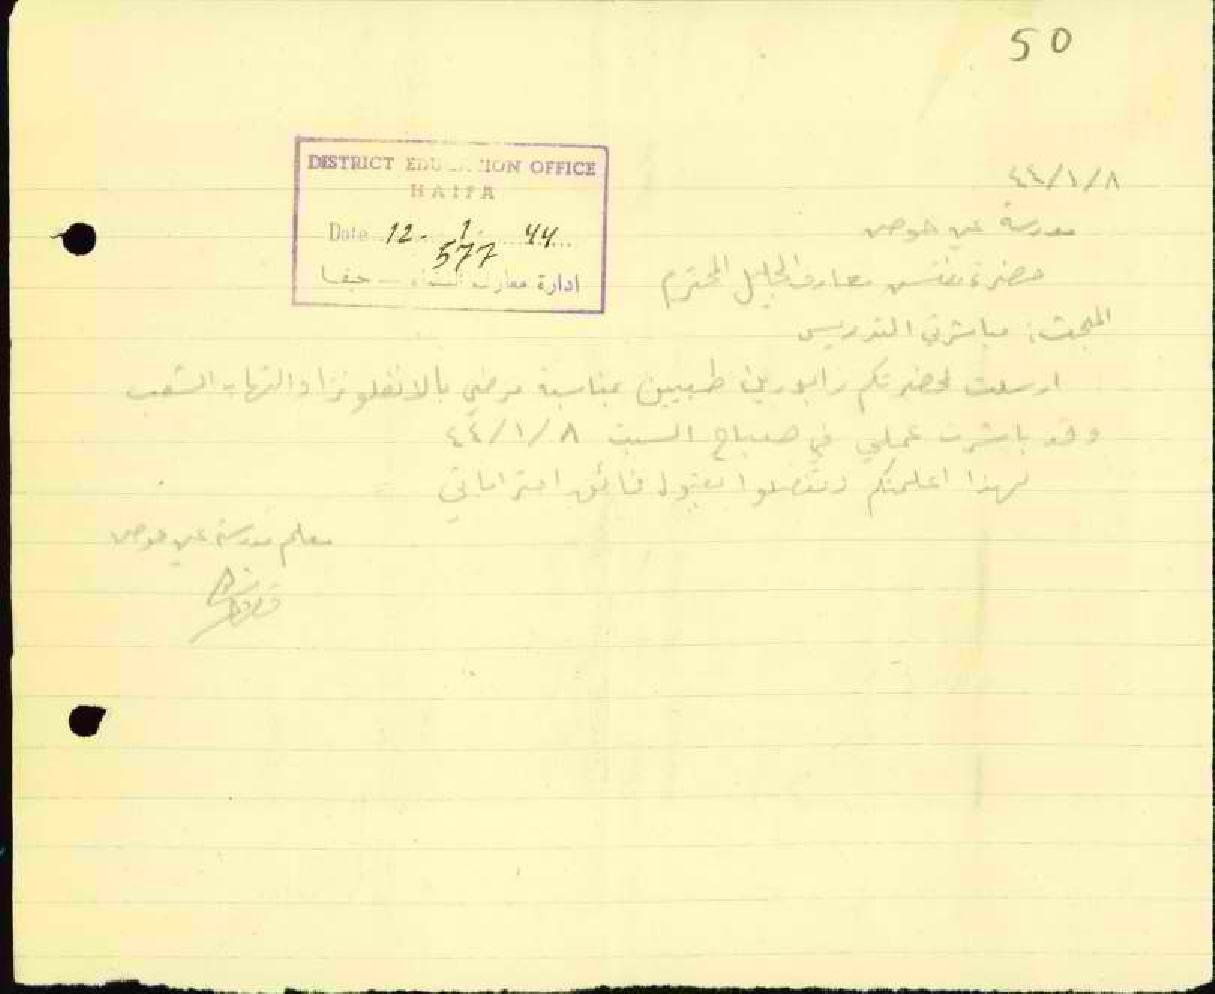 50
DISTRICT EDU... ION OFFICE
HAIFA
Date 12 - 1 - 44
577
ادارة معارف اللواء — حيفا
٤٤/١/٨
مدرسة عين حوض
حضرة مفتش معارف الجليل المحترم
المبحث: مباشرتي التدريس
ارسلت لحضرتكم رابورين طبيين بمناسبة مرضي بالانفلونزا والتهاب الشعب
وقد باشرت عملي في صباح السبت ٤٤/١/٨
لهذا اعلمتكم وتفضلوا بقبول فائق احتراماتي
معلم مدرسة عين حوض